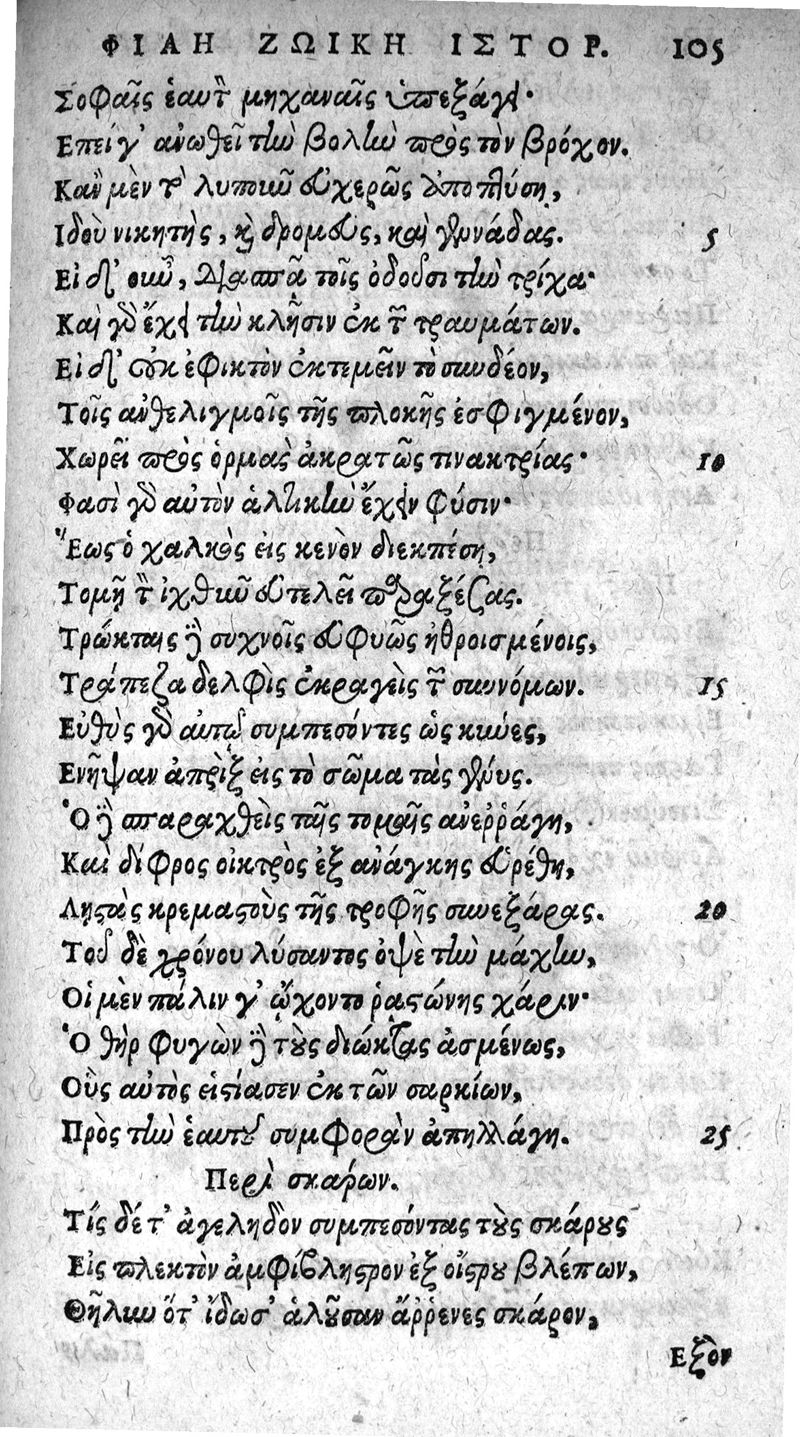 ΦΙΛΗ ΖΩΙΚΗ ΙΣΤΟΡ. 105
Σοφαῖς ἑαυτὸν μηχαναῖς ὑπεξάγει·
Επεί γ' ἀνωθεῖ τὴν βολὴν πρὸς τὸν βρόχον.
Κἂν μὲν τὸ λυποῦν εὐχερῶς ἀποπλύσῃ,
Ιδοὺ νικητὴς, καὶ δρομεὺς, καὶ γεννάδας. 5
Εἰ δ' οὖν, διασπᾷ τοῖς ὀδοῦσι τὴν τρίχα·
Καὶ γὰρ ἔχει τὴν κλῆσιν ἐκ τῶν τραυμάτων.
Εἰ δ' οὐκ ἐφικτὸν ἐκτεμεῖν τὸ συνδέον,
Τοῖς ἀνθελιγμοῖς τῆς πλοκῆς ἐσφιγμένον,
Χωρεῖ πρὸς ὁρμὰς ἀκρατῶς τινακτρίας· 10
Φασὶ γὰρ αὐτὸν ἁλτικὴν ἔχειν φύσιν·
Ἕως ὁ χαλκὸς εἰς κενὸν διεκπέσῃ,
Τομῇ τὸν ἰχθῦν εὐτελεῖ παραξέσας.
Τρώκταις δὲ συχνοῖς εὐφυῶς ἠθροισμένοις,
Τράπεζα δελφὶς ἐκραγεὶς τῶν συννόμων. 15
Εὐθὺς γὰρ αὐτῷ συμπεσόντες ὡς κύνες,
Ενῆψαν ἀπρὶξ εἰς τὸ σῶμα τὰς γένυς.
Ὁ δὲ σπαραχθεὶς ταῖς τομαῖς ἀνεῤῥάγη,
Καὶ δίφρος οἰκτρὸς ἐξ ἀνάγκης εὑρέθη,
Λῃστὰς κρεμαστοὺς τῆς τροφῆς συνεξάρας. 20
Τοῦ δὲ χρόνου λύσαντος ὀψὲ τὴν μάχην,
Οἱ μὲν πάλιν γ' ᾤχοντο ῥαστώνης χάριν·
Ὁ θὴρ φυγὼν δὲ τοὺς διώκτας ἀσμένως,
Οὓς αὐτὸς εἱστίασεν ἐκ τῶν σαρκίων,
Πρὸς τὴν ἑαυτοῦ συμφορὰν ἀπηλλάγη. 25
Περὶ σκάρων.
Τίς δέ τ' ἀγεληδὸν συμπεσόντας τοὺς σκάρους
Εἰς πλεκτὸν ἀμφίβληστρον ἐξ οἴστρου βλέπων,
Θῆλυν ὅτ' ἴδωσ' ἁλοῦσαν ἄῤῥενες σκάρον,
Εξὸν